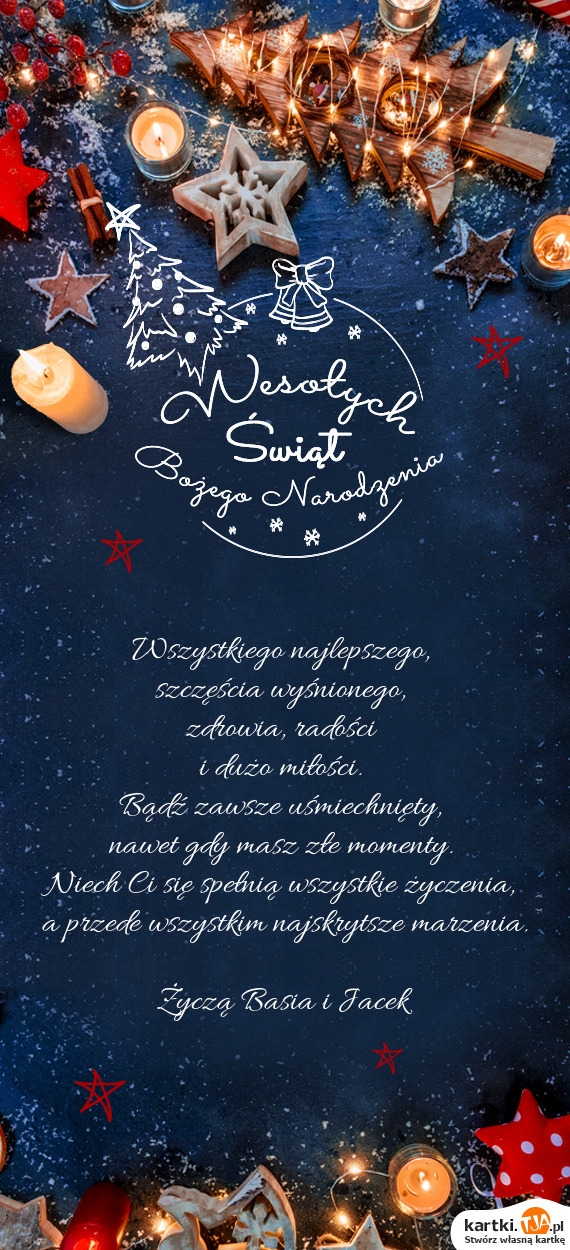 Wesołych
Świąt
Bożego Narodzenia
Wszystkiego najlepszego,
szczęścia wyśnionego,
zdrowia, radości
i dużo miłości.
Bądź zawsze uśmiechnięty,
nawet gdy masz złe momenty.
Niech Ci się spełnią wszystkie życzenia,
a przede wszystkim najskrytsze marzenia.
Życzą Basia i Jacek
kartki.TJA.pl
Stwórz własną kartkę